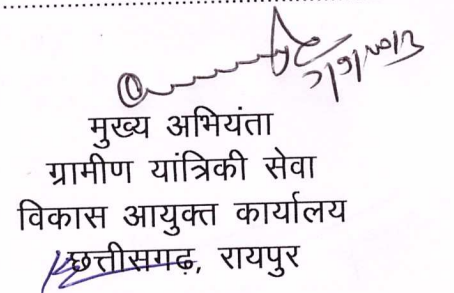 मुख्य अभियंता
ग्रामीण यांत्रिकी सेवा
विकास आयुक्त कार्यालय
छत्तीसगढ़, रायपुर